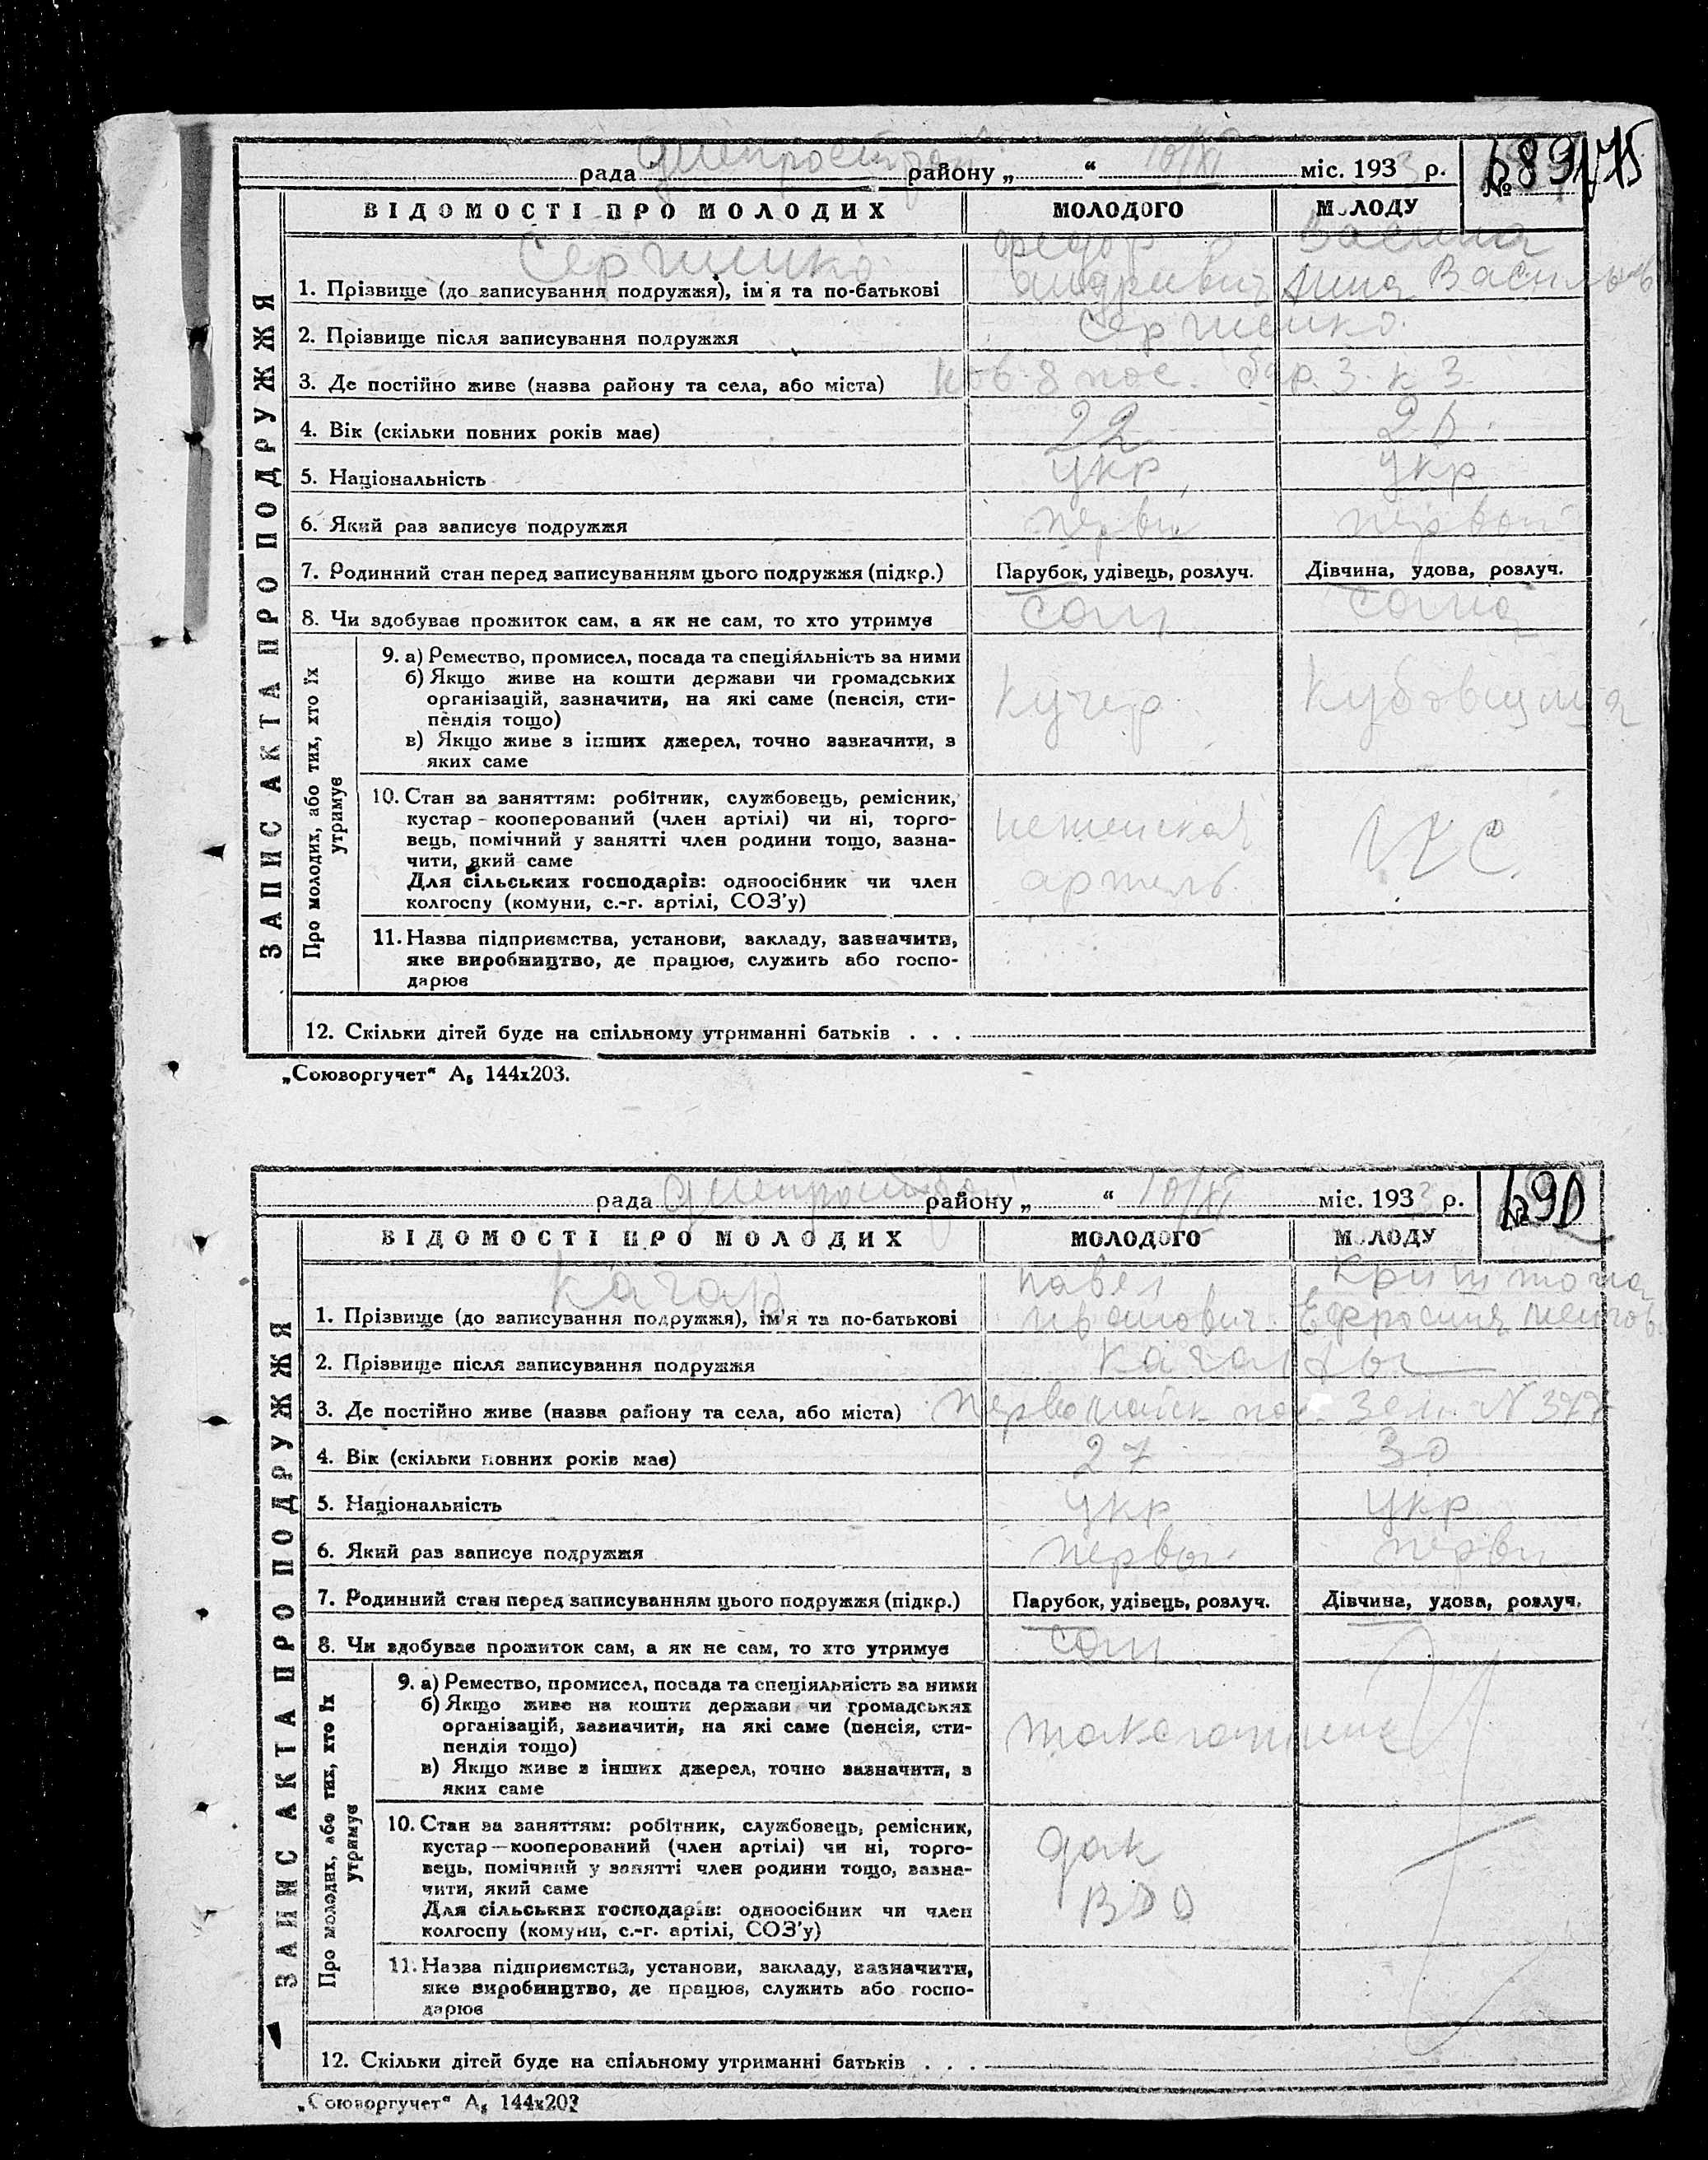 рада Днепрострой району „ “ 10/XI міс. 1933 р.
№ 689 175
ВІДОМОСТІ ПРО МОЛОДИХ
МОЛОДОГО
МОЛОДУ
Сергиенко
Федор
1. Прізвище (до записування подружжя), ім'я та по-батькові
Андреевич
2. Прізвище після записування подружжя
Сергиенко
3. Де постійно живе (назва району та села, або міста)
8 пос. бар. 3. к 3
4. Вік (скільки повних років має)
22
5. Національність
укр
укр
6. Який раз записує подружжя
первы
первой
7. Родинний стан перед записуванням цього подружжя (підкр.)
Парубок, удівець, розлуч.
Дівчина, удова, розлуч.
8. Чи здобуває прожиток сам, а як не сам, то хто утримує
сам
сама
ЗАПИС АКТА ПРО ПОДРУЖЖЯ
Про молодих, або тих, хто їх утримує
9. а) Ремество, промисел, посада та спеціяльність за ними
б) Якщо живе на кошти держави чи громадських
організацій, зазначити, на які саме (пенсія, сти-
пендія тощо)
в) Якщо живе з інших джерел, точно зазначити, з
яких саме
Кучер
Кубовщица
10. Стан за заняттям: робітник, службовець, ремісник,
кустар – кооперований (член артілі) чи ні, торго-
вець, помічний у занятті член родини тощо, зазна-
чити, який саме
Для сільських господарів: одноосібник чи член
колгоспу (комуни, с.-г. артілі, СОЗ'у)
артель
11. Назва підприємства, установи, закладу, зазначити,
яке виробництво, де працює, служить або госпо-
дарює
12. Скільки дітей буде на спільному утриманні батьків . . .
„Союзоргучет“ А₅ 144х203.
рада Днепрострой району „ “ 10/XI міс. 1933 р.
№ 690
ВІДОМОСТІ ПРО МОЛОДИХ
МОЛОДОГО
МОЛОДУ
Павел
1. Прізвище (до записування подружжя), ім'я та по-батькові
Иванович
Ефросиня
2. Прізвище після записування подружжя
3. Де постійно живе (назва району та села, або міста)
Первомайск пос. Зем. N 377
4. Вік (скільки повних років має)
27
30
5. Національність
укр
укр
6. Який раз записує подружжя
первы
первы
7. Родинний стан перед записуванням цього подружжя (підкр.)
Парубок, удівець, розлуч.
Дівчина, удова, розлуч.
8. Чи здобуває прожиток сам, а як не сам, то хто утримує
сам
ЗАПИС АКТА ПРО ПОДРУЖЖЯ
Про молодих, або тих, хто їх утримує
9. а) Ремество, промисел, посада та спеціяльність за ними
б) Якщо живе на кошти держави чи громадських
організацій, зазначити, на які саме (пенсія, сти-
пендія тощо)
в) Якщо живе з інших джерел, точно зазначити, з
яких саме
10. Стан за заняттям: робітник, службовець, ремісник,
кустар — кооперований (член артілі) чи ні, торго-
вець, помічний у занятті член родини тощо, зазна-
чити, який саме
Для сільських господарів: одноосібник чи член
колгоспу (комуни, с.-г. артілі, СОЗ'у)
Дак
11. Назва підприємства, установи, закладу, зазначити,
яке виробництво, де працює, служить або госпо-
дарює
12. Скільки дітей буде на спільному утриманні батьків . . .
„Союзоргучет“ А₅ 144х203